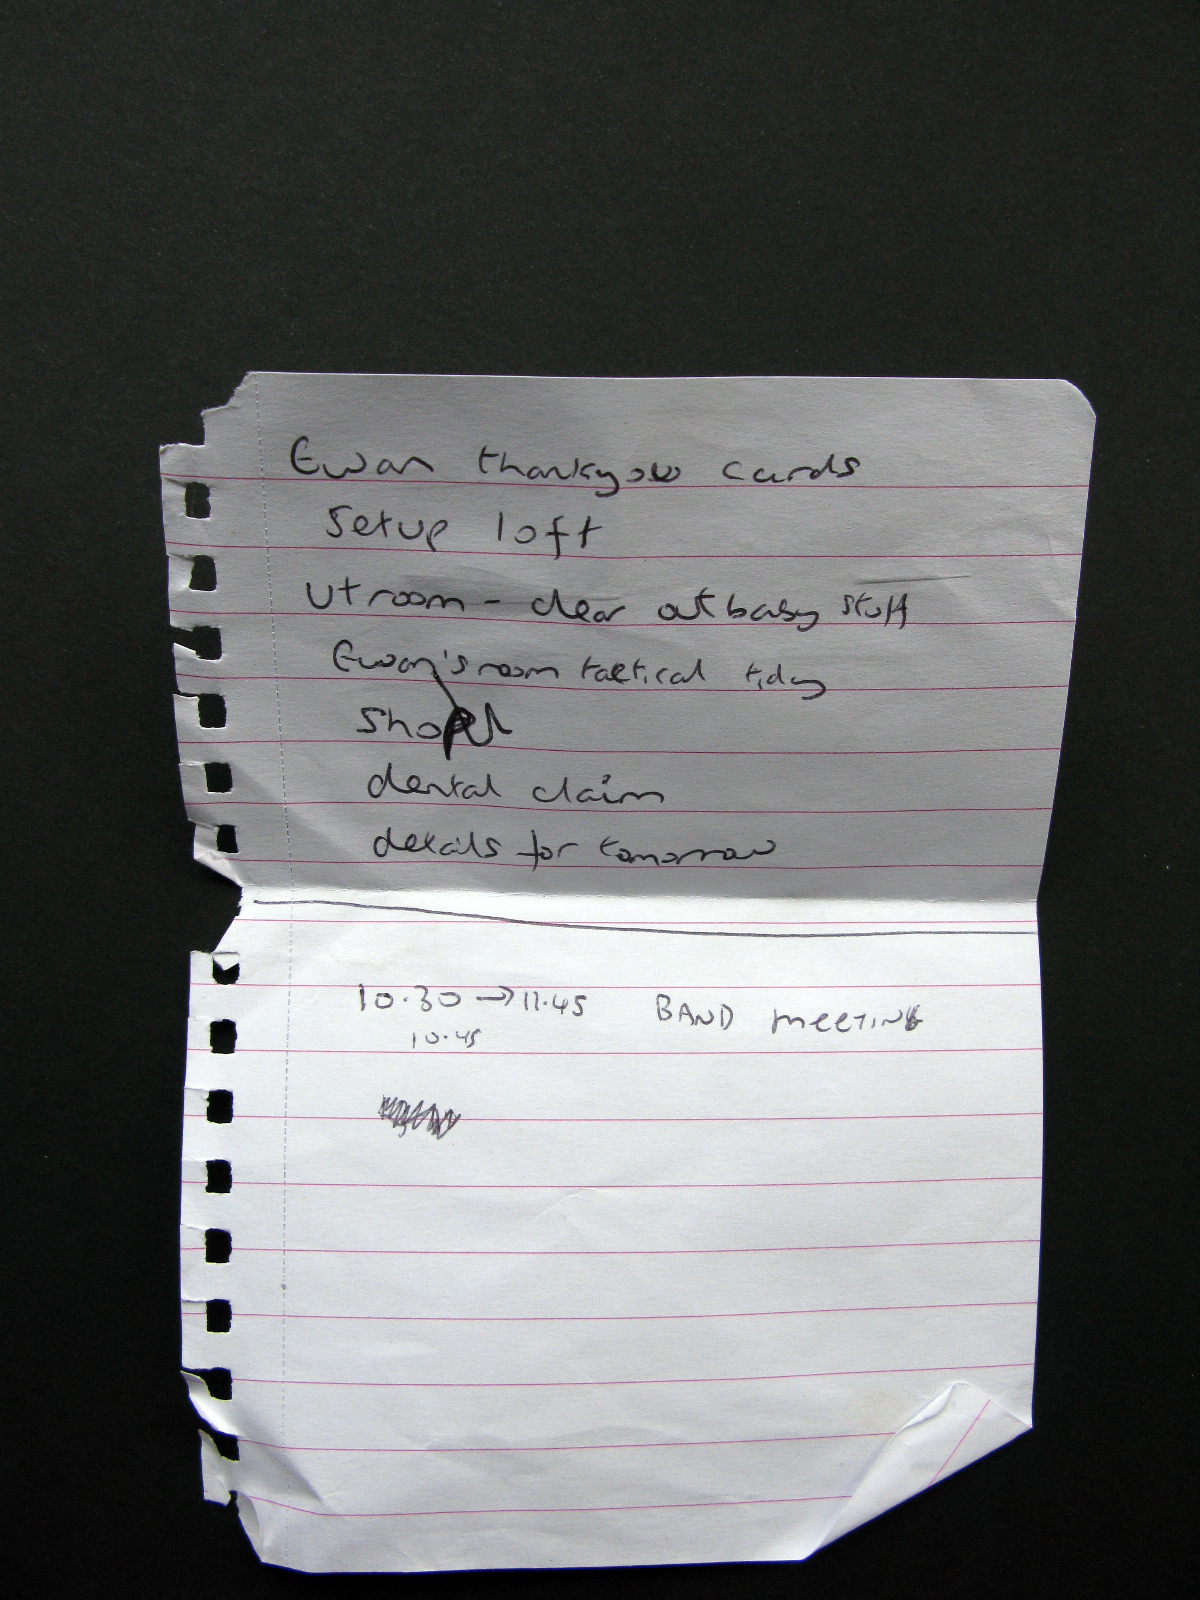 Ewan thankyou cards
Setup loft
Ut room - clear out baby stuff
Ewan's room tactical tidy
dental claim
details for tomorrow
10.30 → 11.45 BAND MEETING
10.45